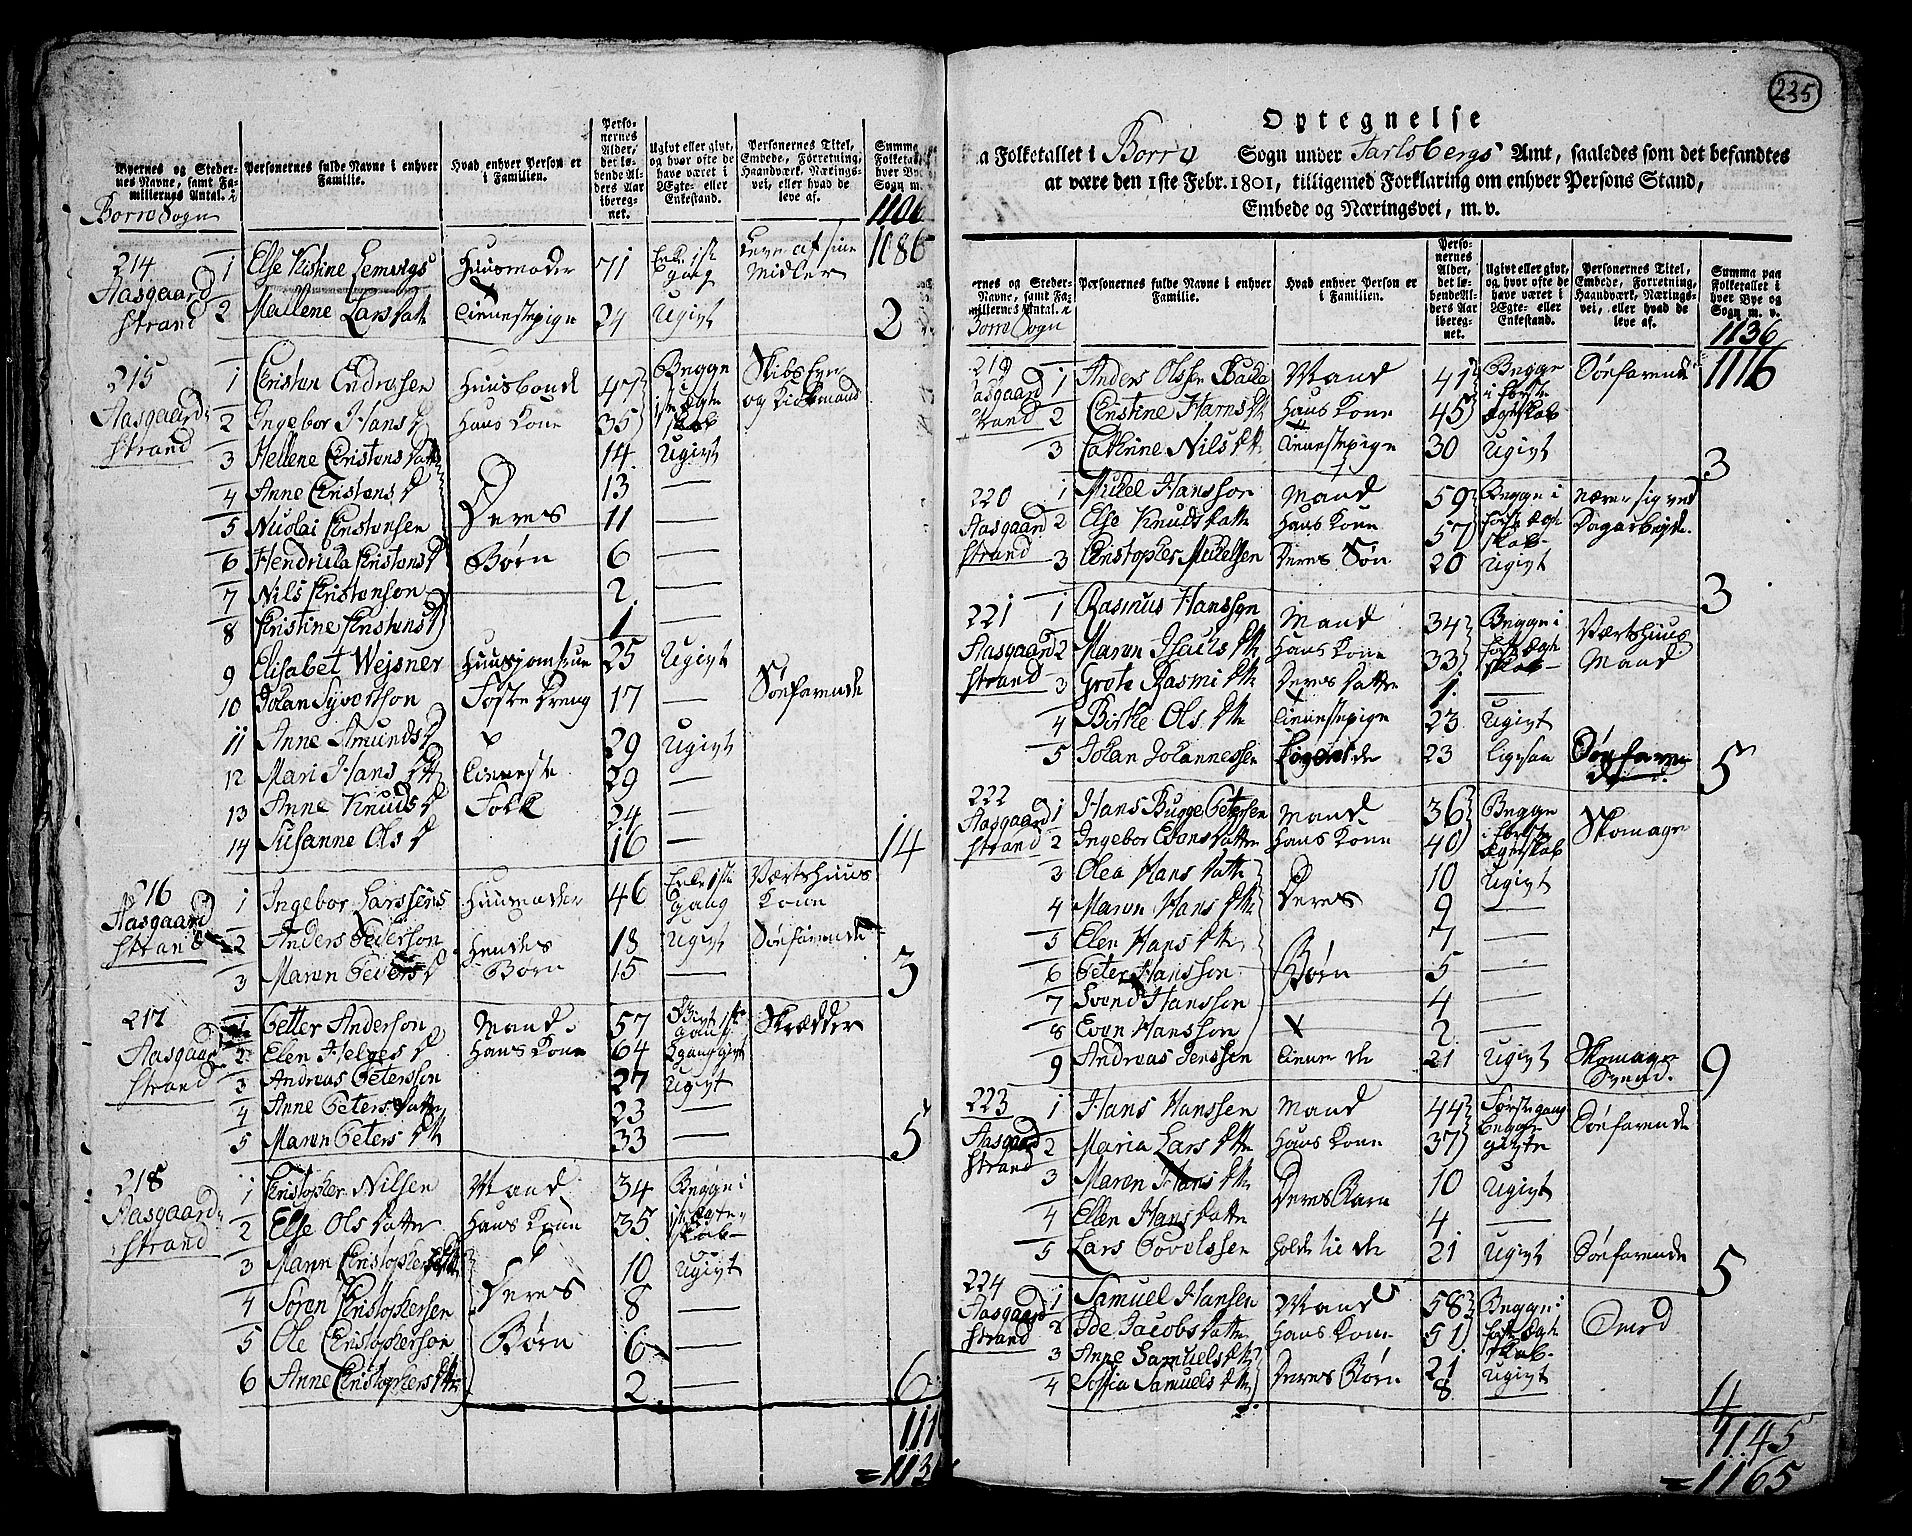 235
Byernes og Stedernes Navne, samt Familiernes Antal.
Personernes fulde Navne i enhver Familie.
Hvad enhver Person er i Familien.
Personernes Alder, det løbende Alders Aar iberegnet.
Ugivt eller givt, og hvor ofte de have været i Ægte- eller Enkestand.
Personernes Titel, Embede, Forretning, Haandværk, Næringsvei, eller hvad de leve af.
Summa Folketallet hver Bye Sogn m.
Borre Sogn 1106
1086
214 Aasgaard strand
1 Else Kristine Lemvigs Huusmoder 71 Enke 1ste gang Leve af sine Midler
2 Mallene Lars Datte Tienestepige 24 Ugivt 2
215 Aasgaard strand
1 Cristen Endresen Huusbonde 47 Begge 1ste Egte skab
2 Ingebor Hans D Hans Kone 35
3 Hellene Cristens Datte 14 Ugivt
4 Anne Cristens D 13 —
5 Nicolai Cristensen Deres 11 —
6 Hendricka Cristens D Børn 6 —
7 Nils Kristensen 2 —
8 Kristine Cristens D 1 —
9 Elisabet Wejsner Huusjomfrue 25 Ugivt
10 Johan Syvertson Foster Dreng 17 — Søefarende
11 Anne Amunds D 29 Ugivt
12 Mari Hans Dtt Tieneste 29 —
13 Anne Knuds D Folk 24 —
14 Susanne Ols D 16 — 14
216 Aasgaard strand
1 Ingebor Larssens Huusmoder 46 Enke 1ste gang Vertshuus Kone
2 Anders Pederson Hendes 18 Ugivt Søefarende
3 Maren Peders D Børn 15 — 3
217 Aasgaard strand
1 Petter Anderson Mand 57 Givt 1ste gang Skrædder
2 Elen Helges D Hans Kone 64 2 gang givt
3 Andreas Peterson 27 Ugivt
4 Anne Peters Datte 23 —
5 Maren Peters Dtt 33 — 5
218 Aasgaard strand
1 Kristopher Nilsen Mand 34 Begge i 1ste Egte skab
2 Else Ols Datte Hans Kone 35
3 Maren Cristophers Dtt 10 Ugivt
4 Søren Kristophersen Deres 8 —
5 Ole Cristopherson Børn 6 —
6 Anne Cristophers Dtt 2 — 6
Optegnelse
Folketallet i Borre Sogn under Jarlsbergs Amt, saaledes som det befandtes
at være den 1ste Febr. 1801, tilligemed Forklaring om enhver Persons Stand,
Embede og Næringsvei, m. v.
Personernes fulde Navne i enhver Familie.
Hvad enhver Person er i Familien.
Personernes Alder, det løbende Alders Aar iberegnet.
Ugivt eller givt, og hvor ofte de have været i Ægte- eller Enkestand.
Personernes Titel, Embede, Forretning, Haandværk, Næringsvei, eller hvad de leve af.
Summa paa Folketallet i hver Bye og Sogn m. v.
Borre Sogn 1136
1116
219 Aasgaard strand
1 Anders Olssen Mand 41 Begge i første Egteskab Søefarende
2 Cristine Hans Dtt Hans Kone 45
3 Cathrine Nils Dtt Tienestepige 30 Ugivt 3
220 Aasgaard strand
1 Mickel Hansson Mand 59 Begge i først Egte skab Nærer sig ved Dagarbeyde
2 Else Knuds Datte Hans Kone 57
3 Cristopher Mickelsen Deres Søn 20 Ugivt 3
221 Aasgaard strand
1 Rasmus Hansson Mand 34 Begge i først Egte skab Vertshuus Mand
2 Maren Isachs Dtt Hans Kone 33
3 Grete Rasmi Dtt Deres Datte 1 —
4 Birthe Ols Dtt Tienestepige 23 Ugivt
5 Johan Johannessen Logerende 23 Ligesaa Søefarende 5
222 Aasgaard strand
1 Hans Bugge Petersen Mand 36 Begge i første Egteskab Skomager
2 Ingebor Evens Datte Hans Kone 40
3 Olea Hans Datte 10 Ugivt
4 Maren Hans Dtt Deres 9 —
5 Elen Hans Dtt 7 —
6 Peter Hansson Børn 5 —
7 Svend Hansson 4 —
8 Even Hansson 2 —
9 Andreas Jenssen Tienende 21 Ugivt Skomager Svend. 9
223 Aasgaard strand
1 Hans Hanssen Mand 44 Første gang begge givte Søefarende
2 Maria Lars Dtt Hans Kone 37
3 Maren Hans Dtt Deres Barn 10 Ugivt
4 Ellen Hans Datte 4 —
5 Lars Povelssen Holde til de 21 Ugivt Søefarende 5
224 Aasgaard strand
1 Samuel Hansen Mand 58 Begge i først Egte skab Smed
2 Ide Jacobs Datte Hans Kone 51
3 Anne Samuels Dtt Deres Børn 21 Ugivt
4 Soffia Samuels Dtt 8 — 4
1145
=1165